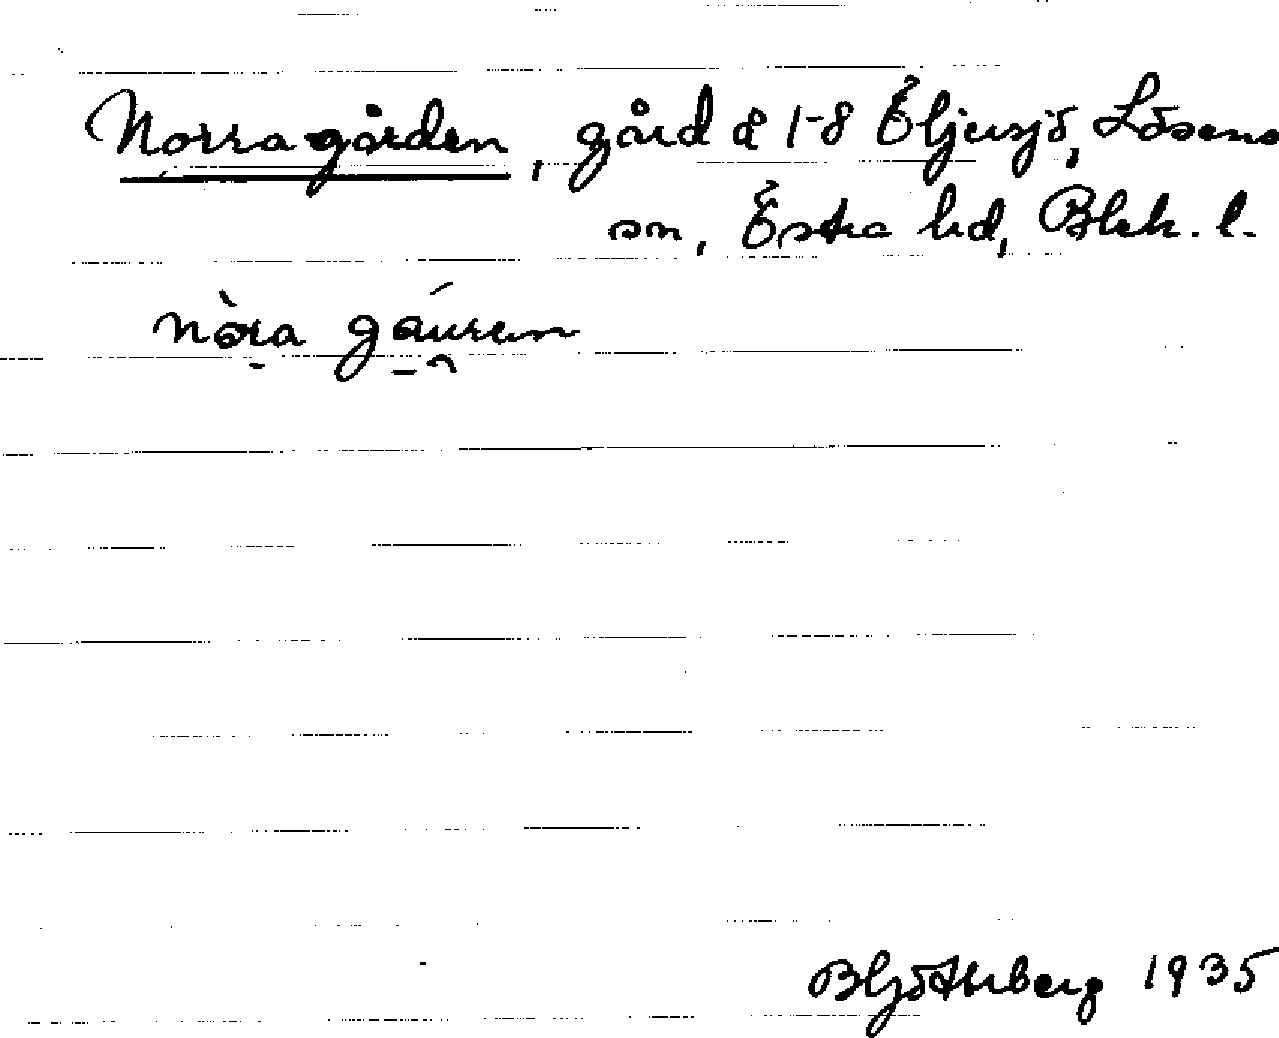 Norra gården, gård å 1-8 Öljersjö, Lösens
sn, Östra hd, Blek. l.
nòra gáuren
1935